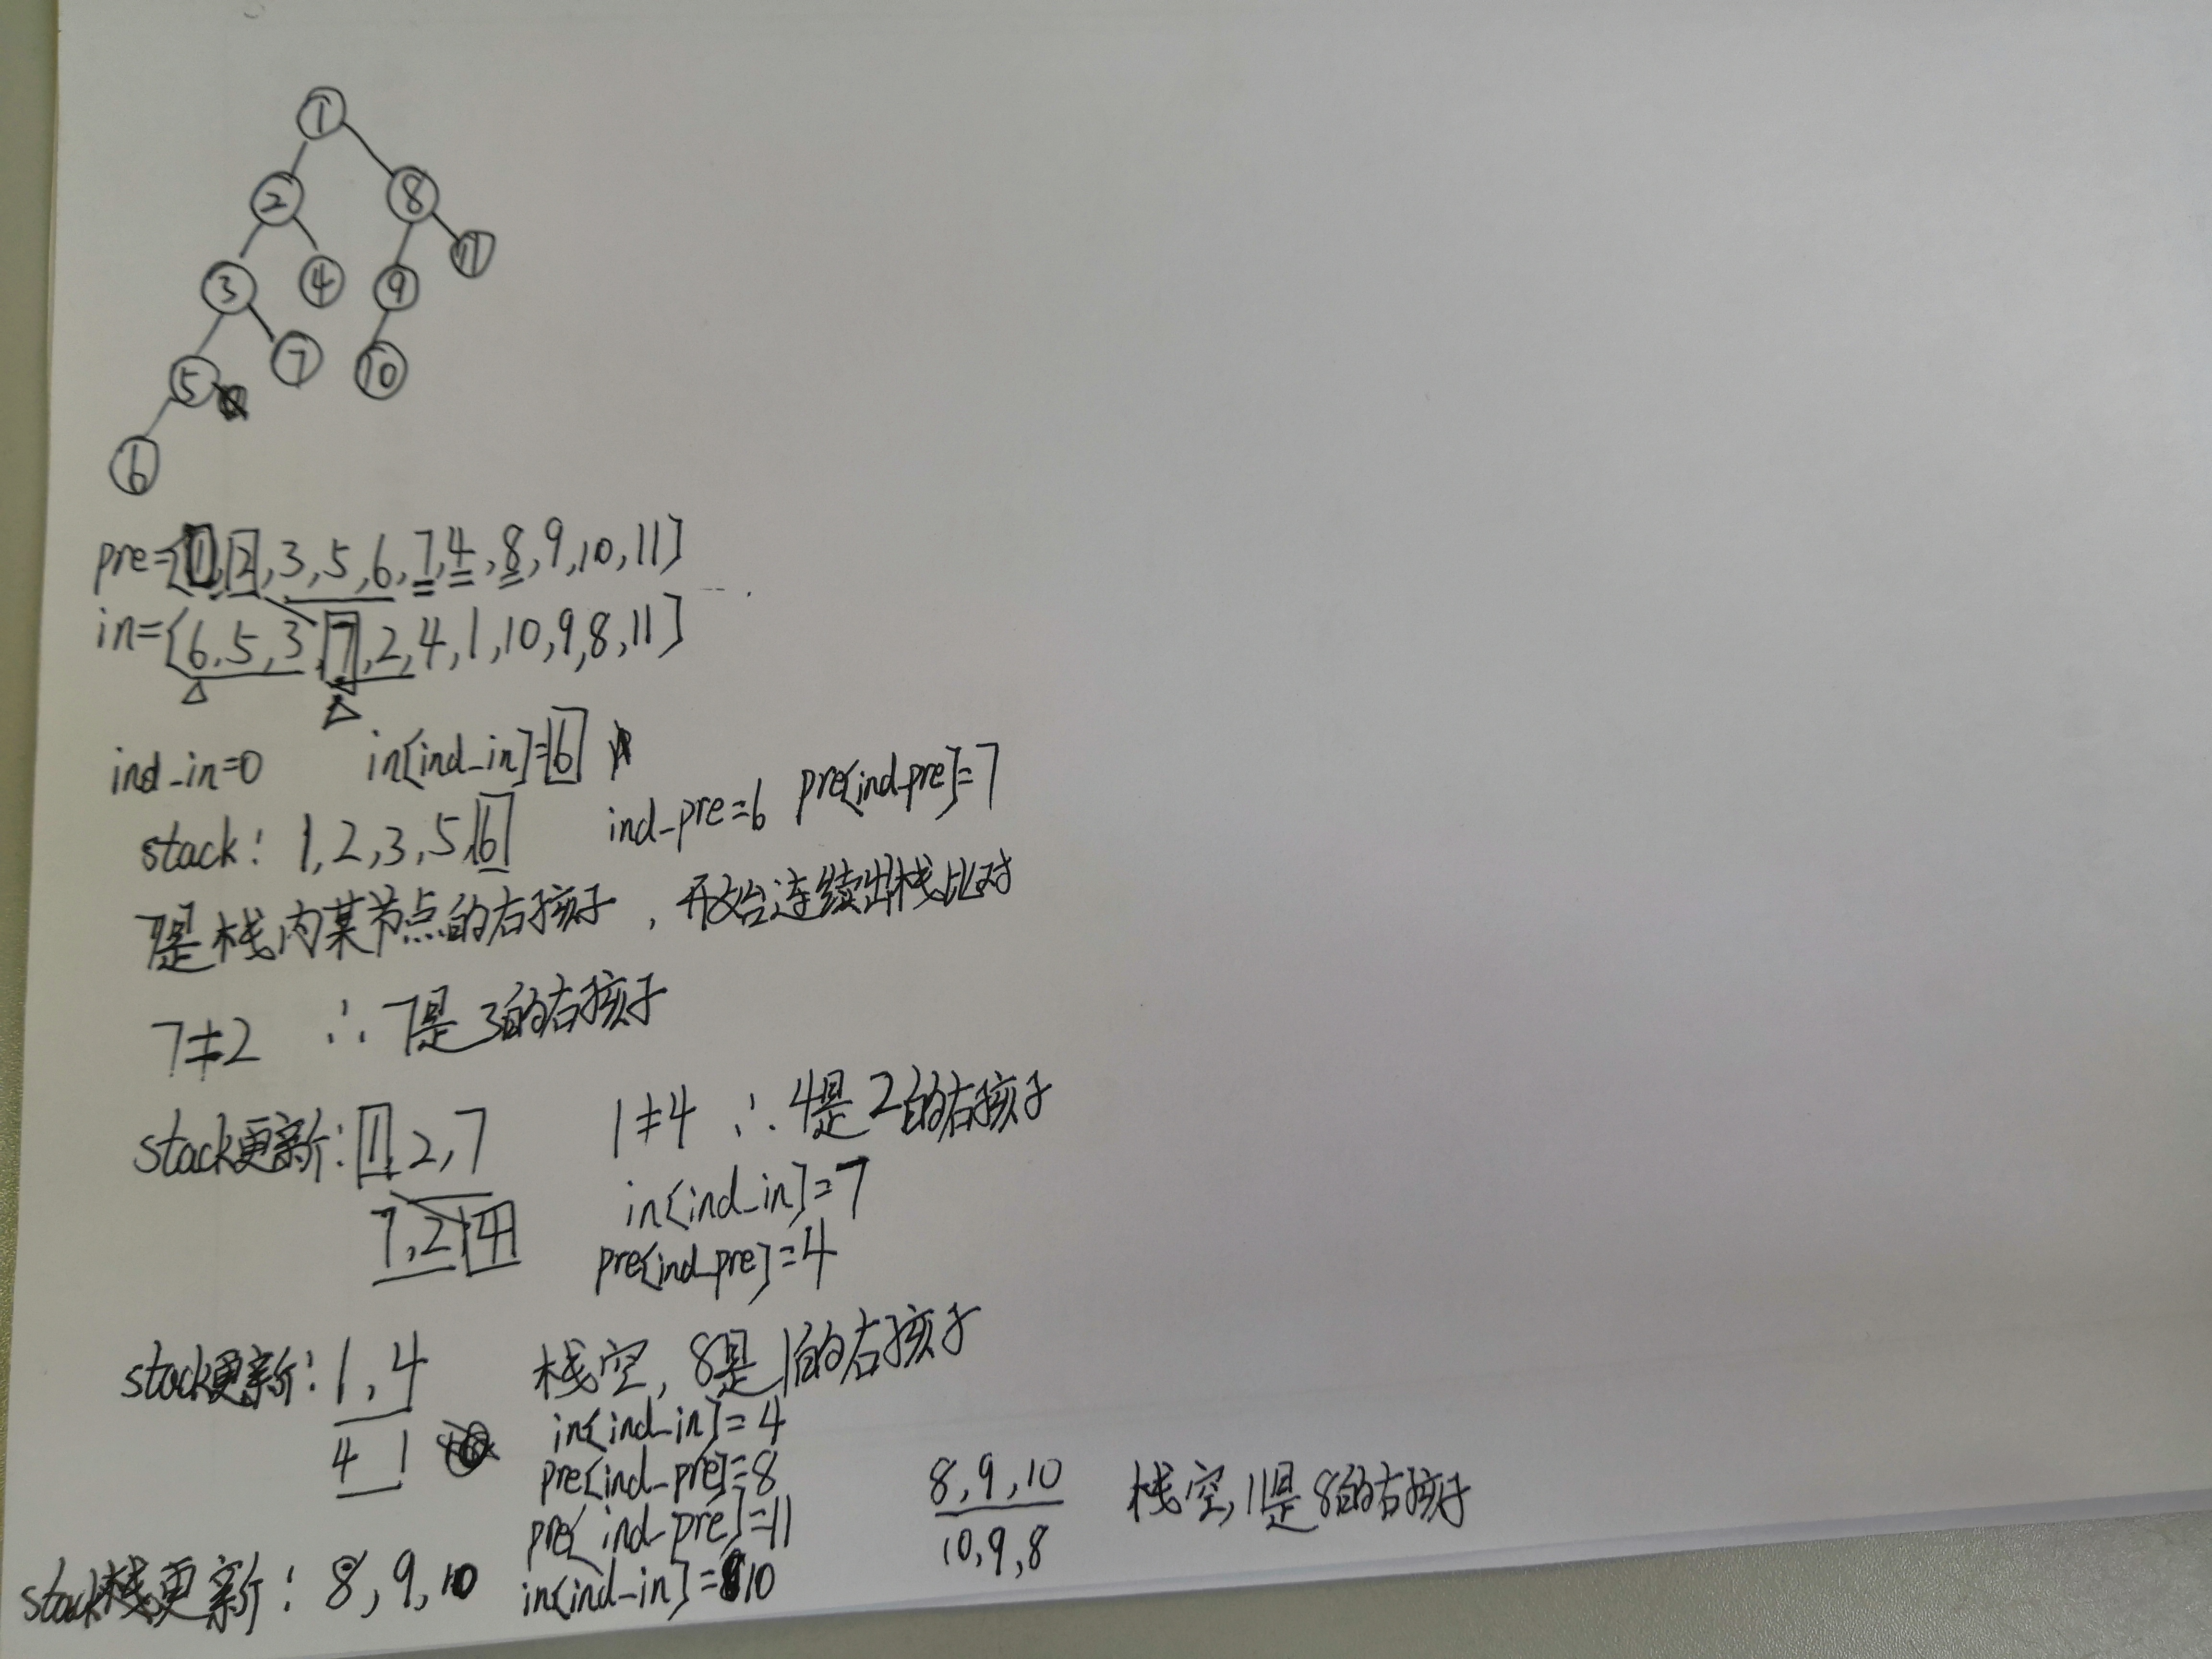 1
2 8
11
3 4 9
5 7 10
6
pre={1,2,3,5,6,7,4,8,9,10,11}
in={6,5,3,7,2,4,1,10,9,8,11}
ind_in=0 in[ind_in]=6
ind_pre=6 pre[ind_pre]=7
stack: 1,2,3,5,6
7是栈内某节点的右孩子，开始连续出栈比对
7≠2 ∴7是3的右孩子
stack更新:1,2,7 1≠4 ∴4是2的右孩子
7,2,4 in[ind_in]=7
pre[ind_pre]=4
stack更新:1,4 栈空,8是1的右孩子
4 1 in[ind_in]=4
pre[ind_pre]=8
pre[ind_pre]=11
stack栈更新:8,9,10 in[ind_in]=10
8,9,10 栈空,11是8的右孩子
10,9,8